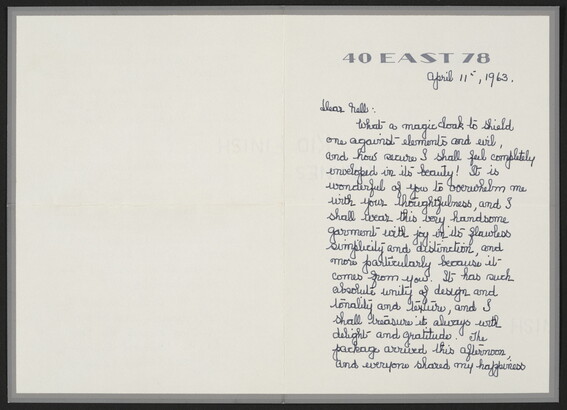 40 EAST 78
April 11th, 1963.
Dear Nell:
What a magic cloak to shield
one against elements and evil,
and how secure I shall feel completely
enveloped in its beauty! It is
wonderful of you to overwhelm me
with your thoughtfulness, and I
shall wear this very handsome
garment with joy in its flawless
simplicity and distinction, and
more particularly because it
comes from you. It has such
absolute unity of design and
tonality and texture, and I
shall treasure it always with
delight and gratitude. The
package arrived this afternoon,
and everyone shared my happiness